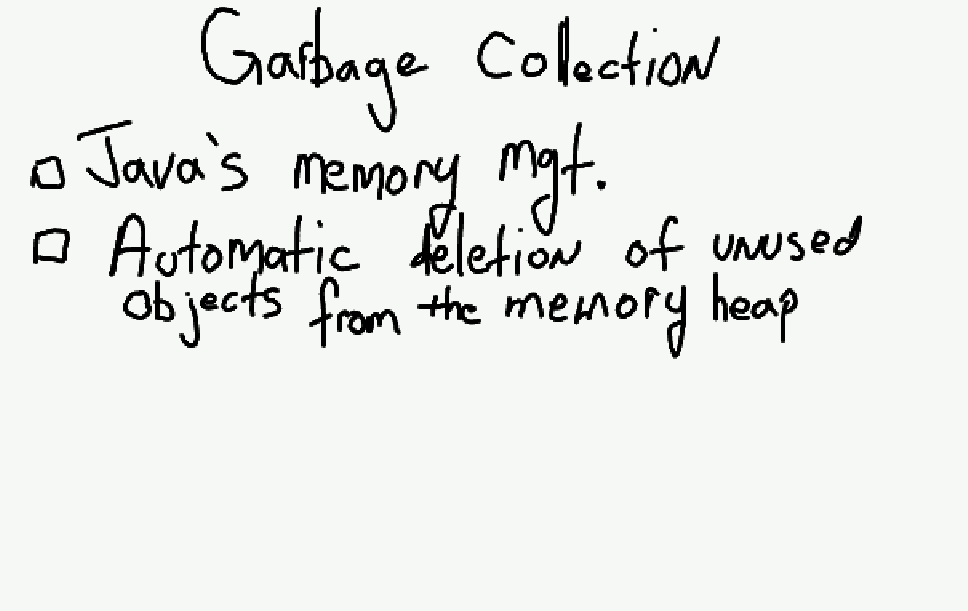 Garbage Collection
Java's memory mgt.
Automatic deletion of unused
objects from the memory heap